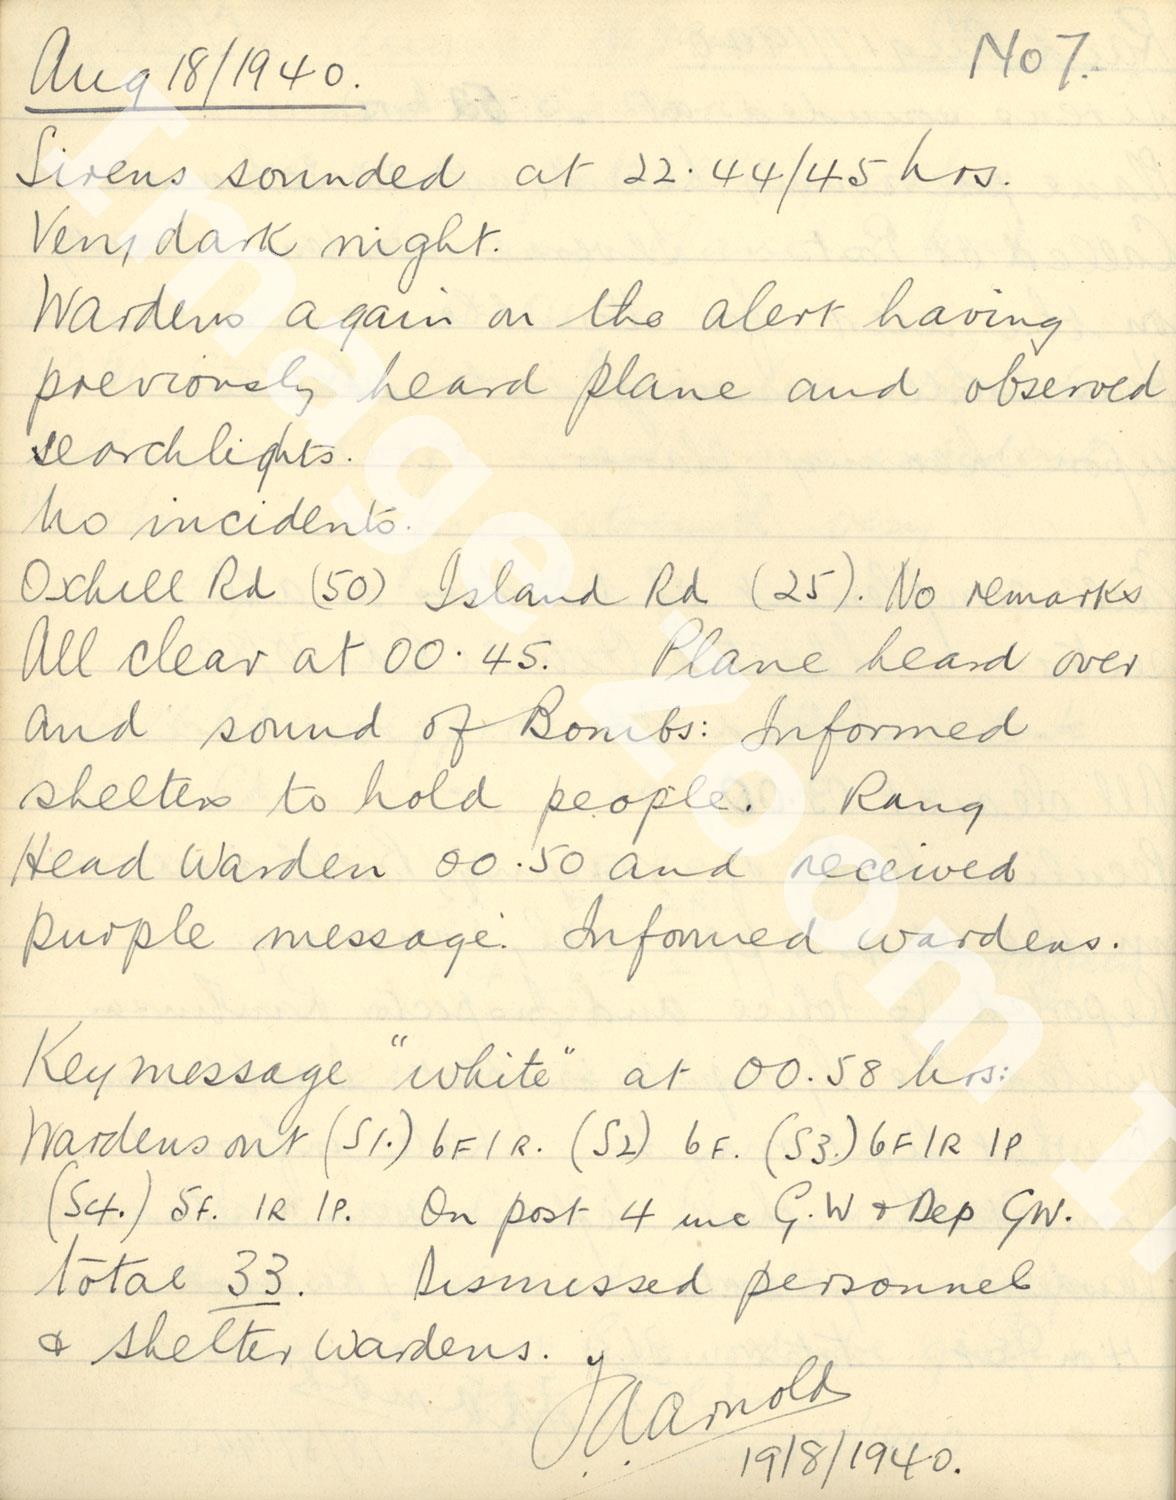 Aug 18/1940.
No 7.
Sirens sounded at 22.44/45 hrs.
Very dark night.
Wardens again on the alert having
previously heard plane and observed
searchlights.
No incidents.
Oxhill Rd (50) Island Rd (25). No remarks
All clear at 00.45. Plane heard over
and sound of Bombs: Informed
shelters to hold people. Rang
Head Warden 00.50 and received
purple message. Informed wardens.
Key message "white" at 00.58 hrs:
Wardens out (S1.) 6F 1R. (S2) 6F. (S3.) 6F 1R 1P
(S4.) 5F. 1R 1P. On post 4 inc G.W & Dep GW.
total 33. Dismissed personnel
& shelter wardens.
Arnold
19/8/1940.